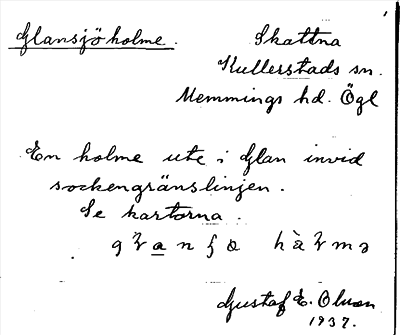 Glansjöholme. Skattna
Kullerstads sn.
Memmings hd. Ögl
En holme ute i Glan invid
sockengränslinjen.
Se kartorna.
Gustaf E. Olsson
1937.